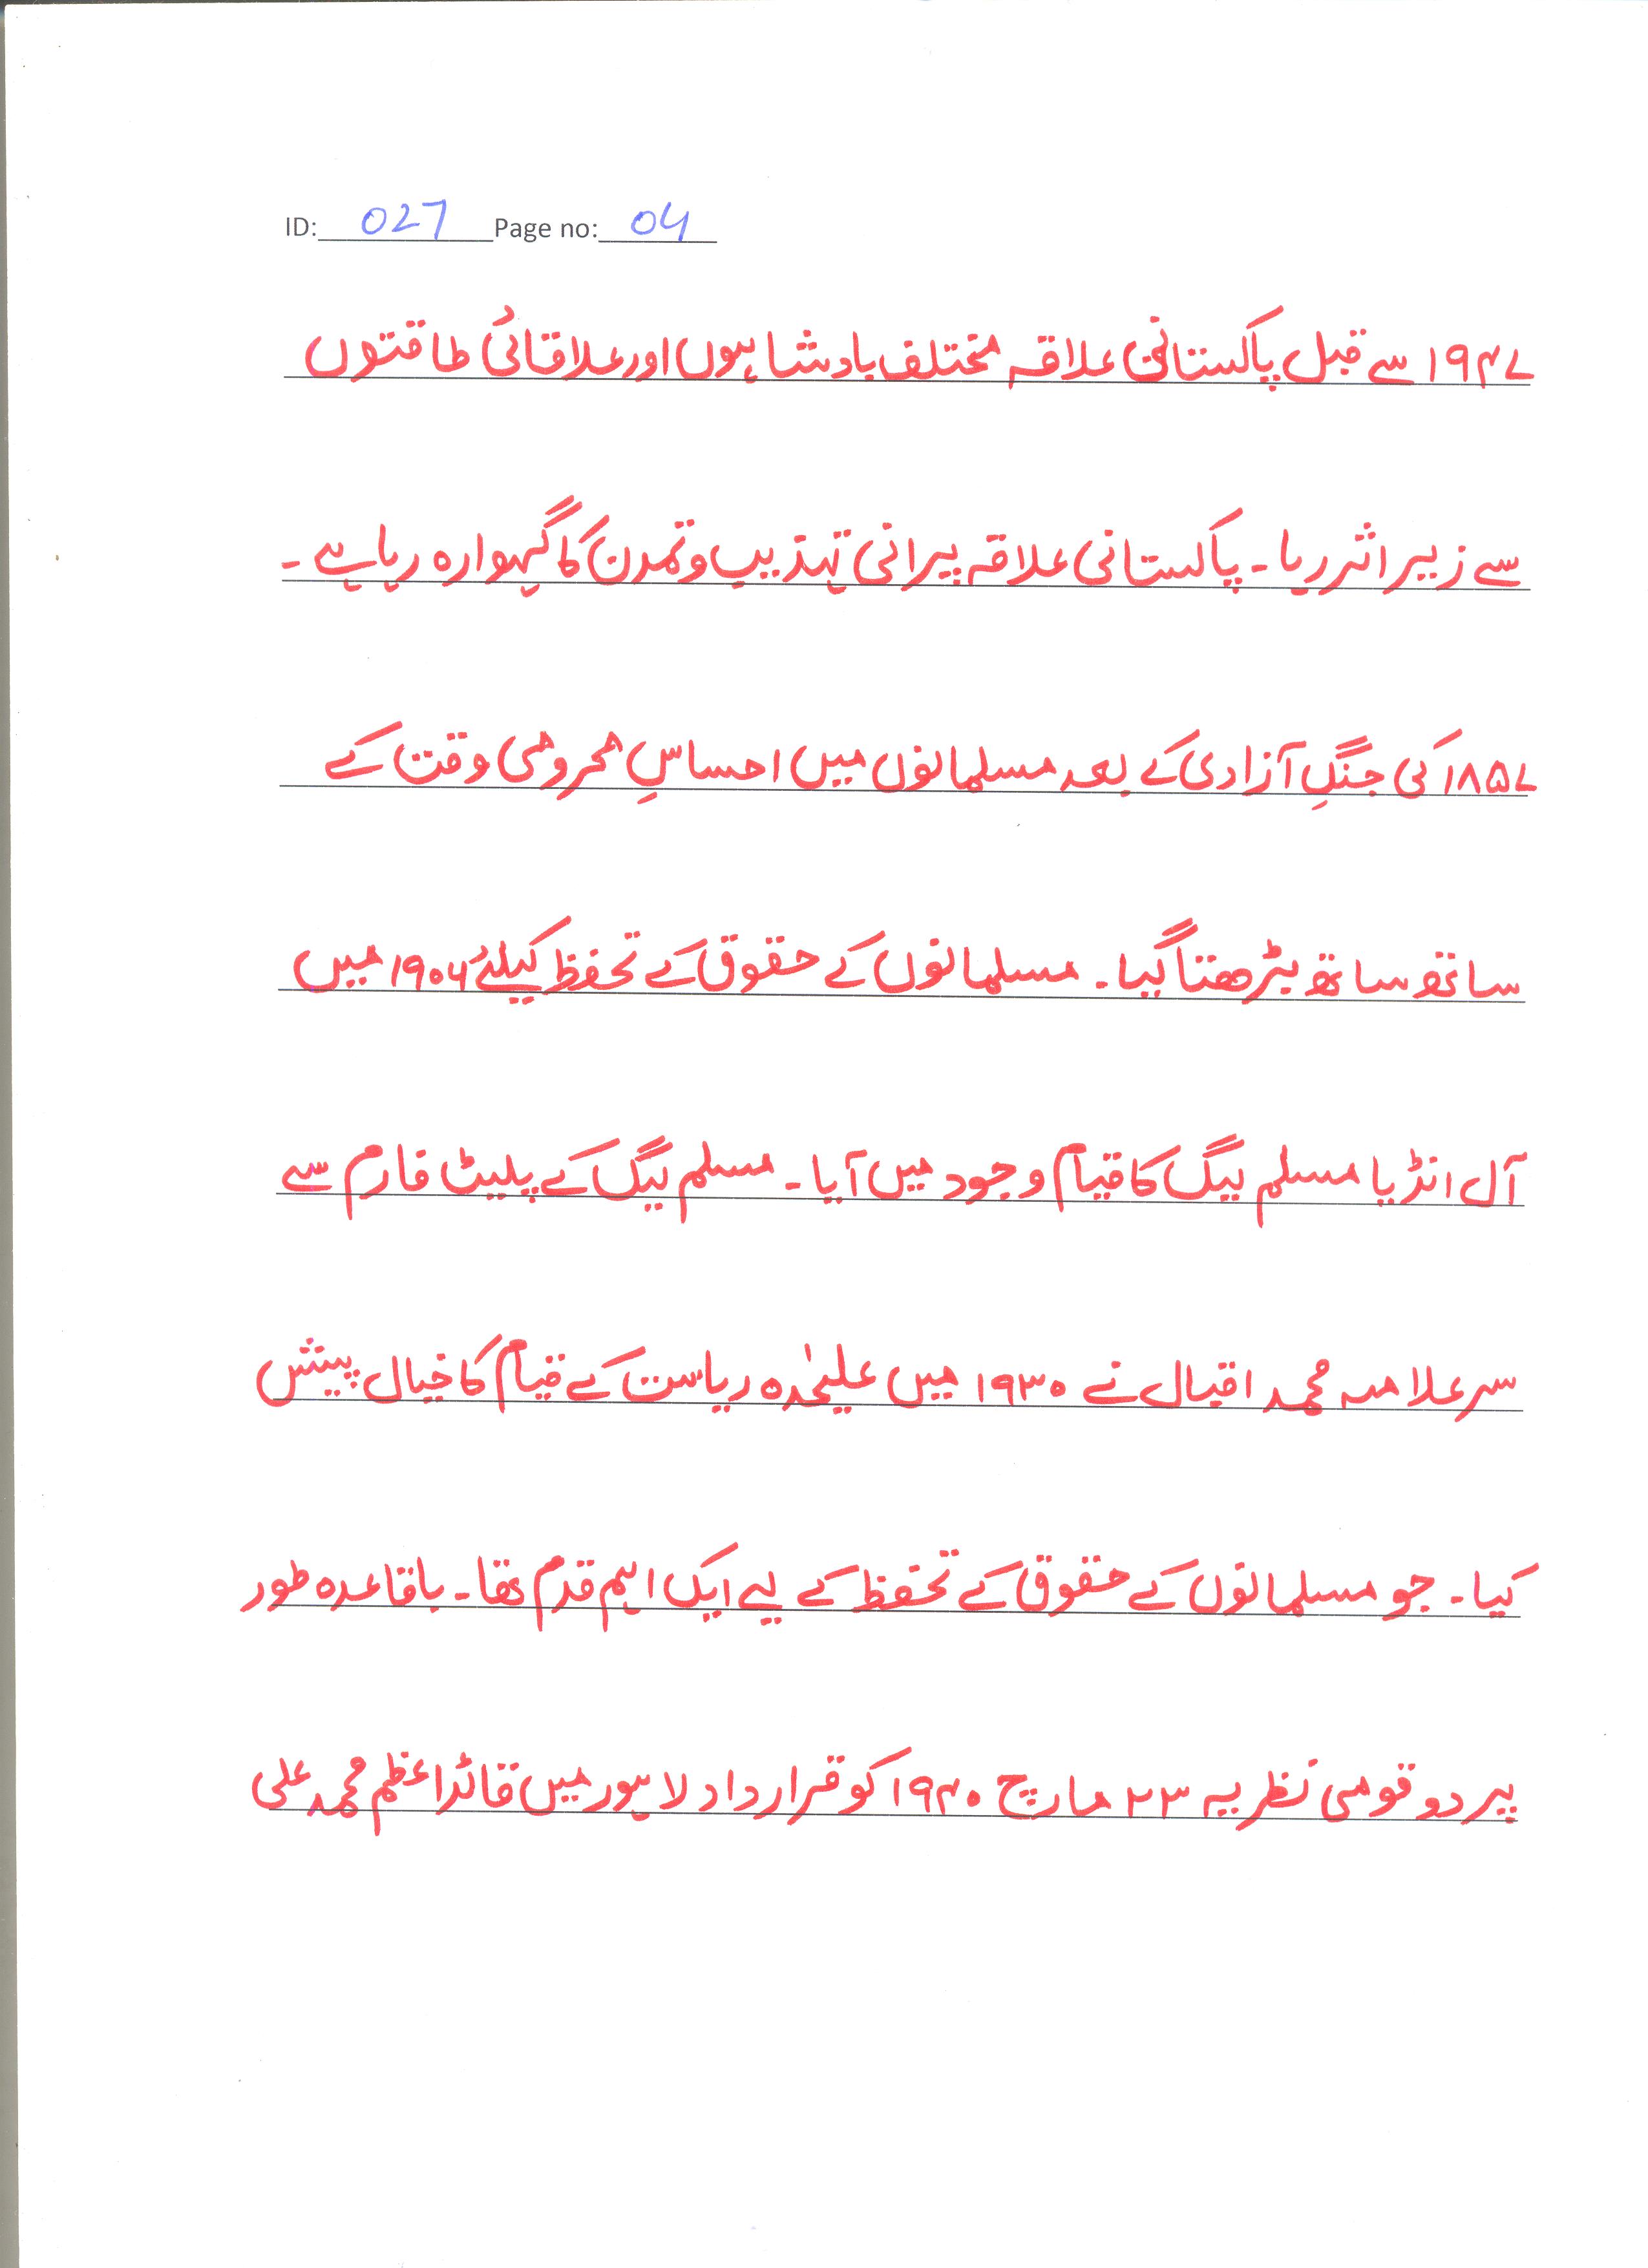 ID: 027 Page no: 04
۱۹۴۷ سے قبل پاکستانی علاقہ مختلف بادشاہوں اور علاقائی طاقتوں
سے زیر اثر رہا۔ پاکستانی علاقہ پرانی تہذیب و تمدن کا گہوارہ رہا ہے۔
۱۸۵۷ کی جنگِ آزادی کے بعد مسلمانوں میں احساسِ محرومی وقت کے
ساتھ ساتھ بڑھتا گیا۔ مسلمانوں کے حقوق کے تحفظ کیلئے ۱۹۰۶ میں
آل انڈیا مسلم لیگ کا قیام وجود میں آیا۔ مسلم لیگ کے پلیٹ فارم سے
سر علامہ محمد اقبال نے ۱۹۳۰ میں علیٰحدہ ریاست کے قیام کا خیال پیش
کیا۔ جو مسلمانوں کے حقوق کے تحفظ کے لیے ایک اہم قدم تھا۔ باقاعدہ طور
پر دو قومی نظریہ ۲۳ مارچ ۱۹۴۰ کو قرارداد لاہور میں قائداعظم محمد علی